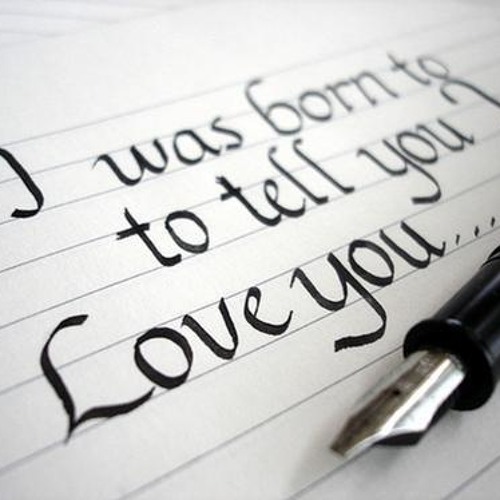 I was born to
to tell you
Love you...